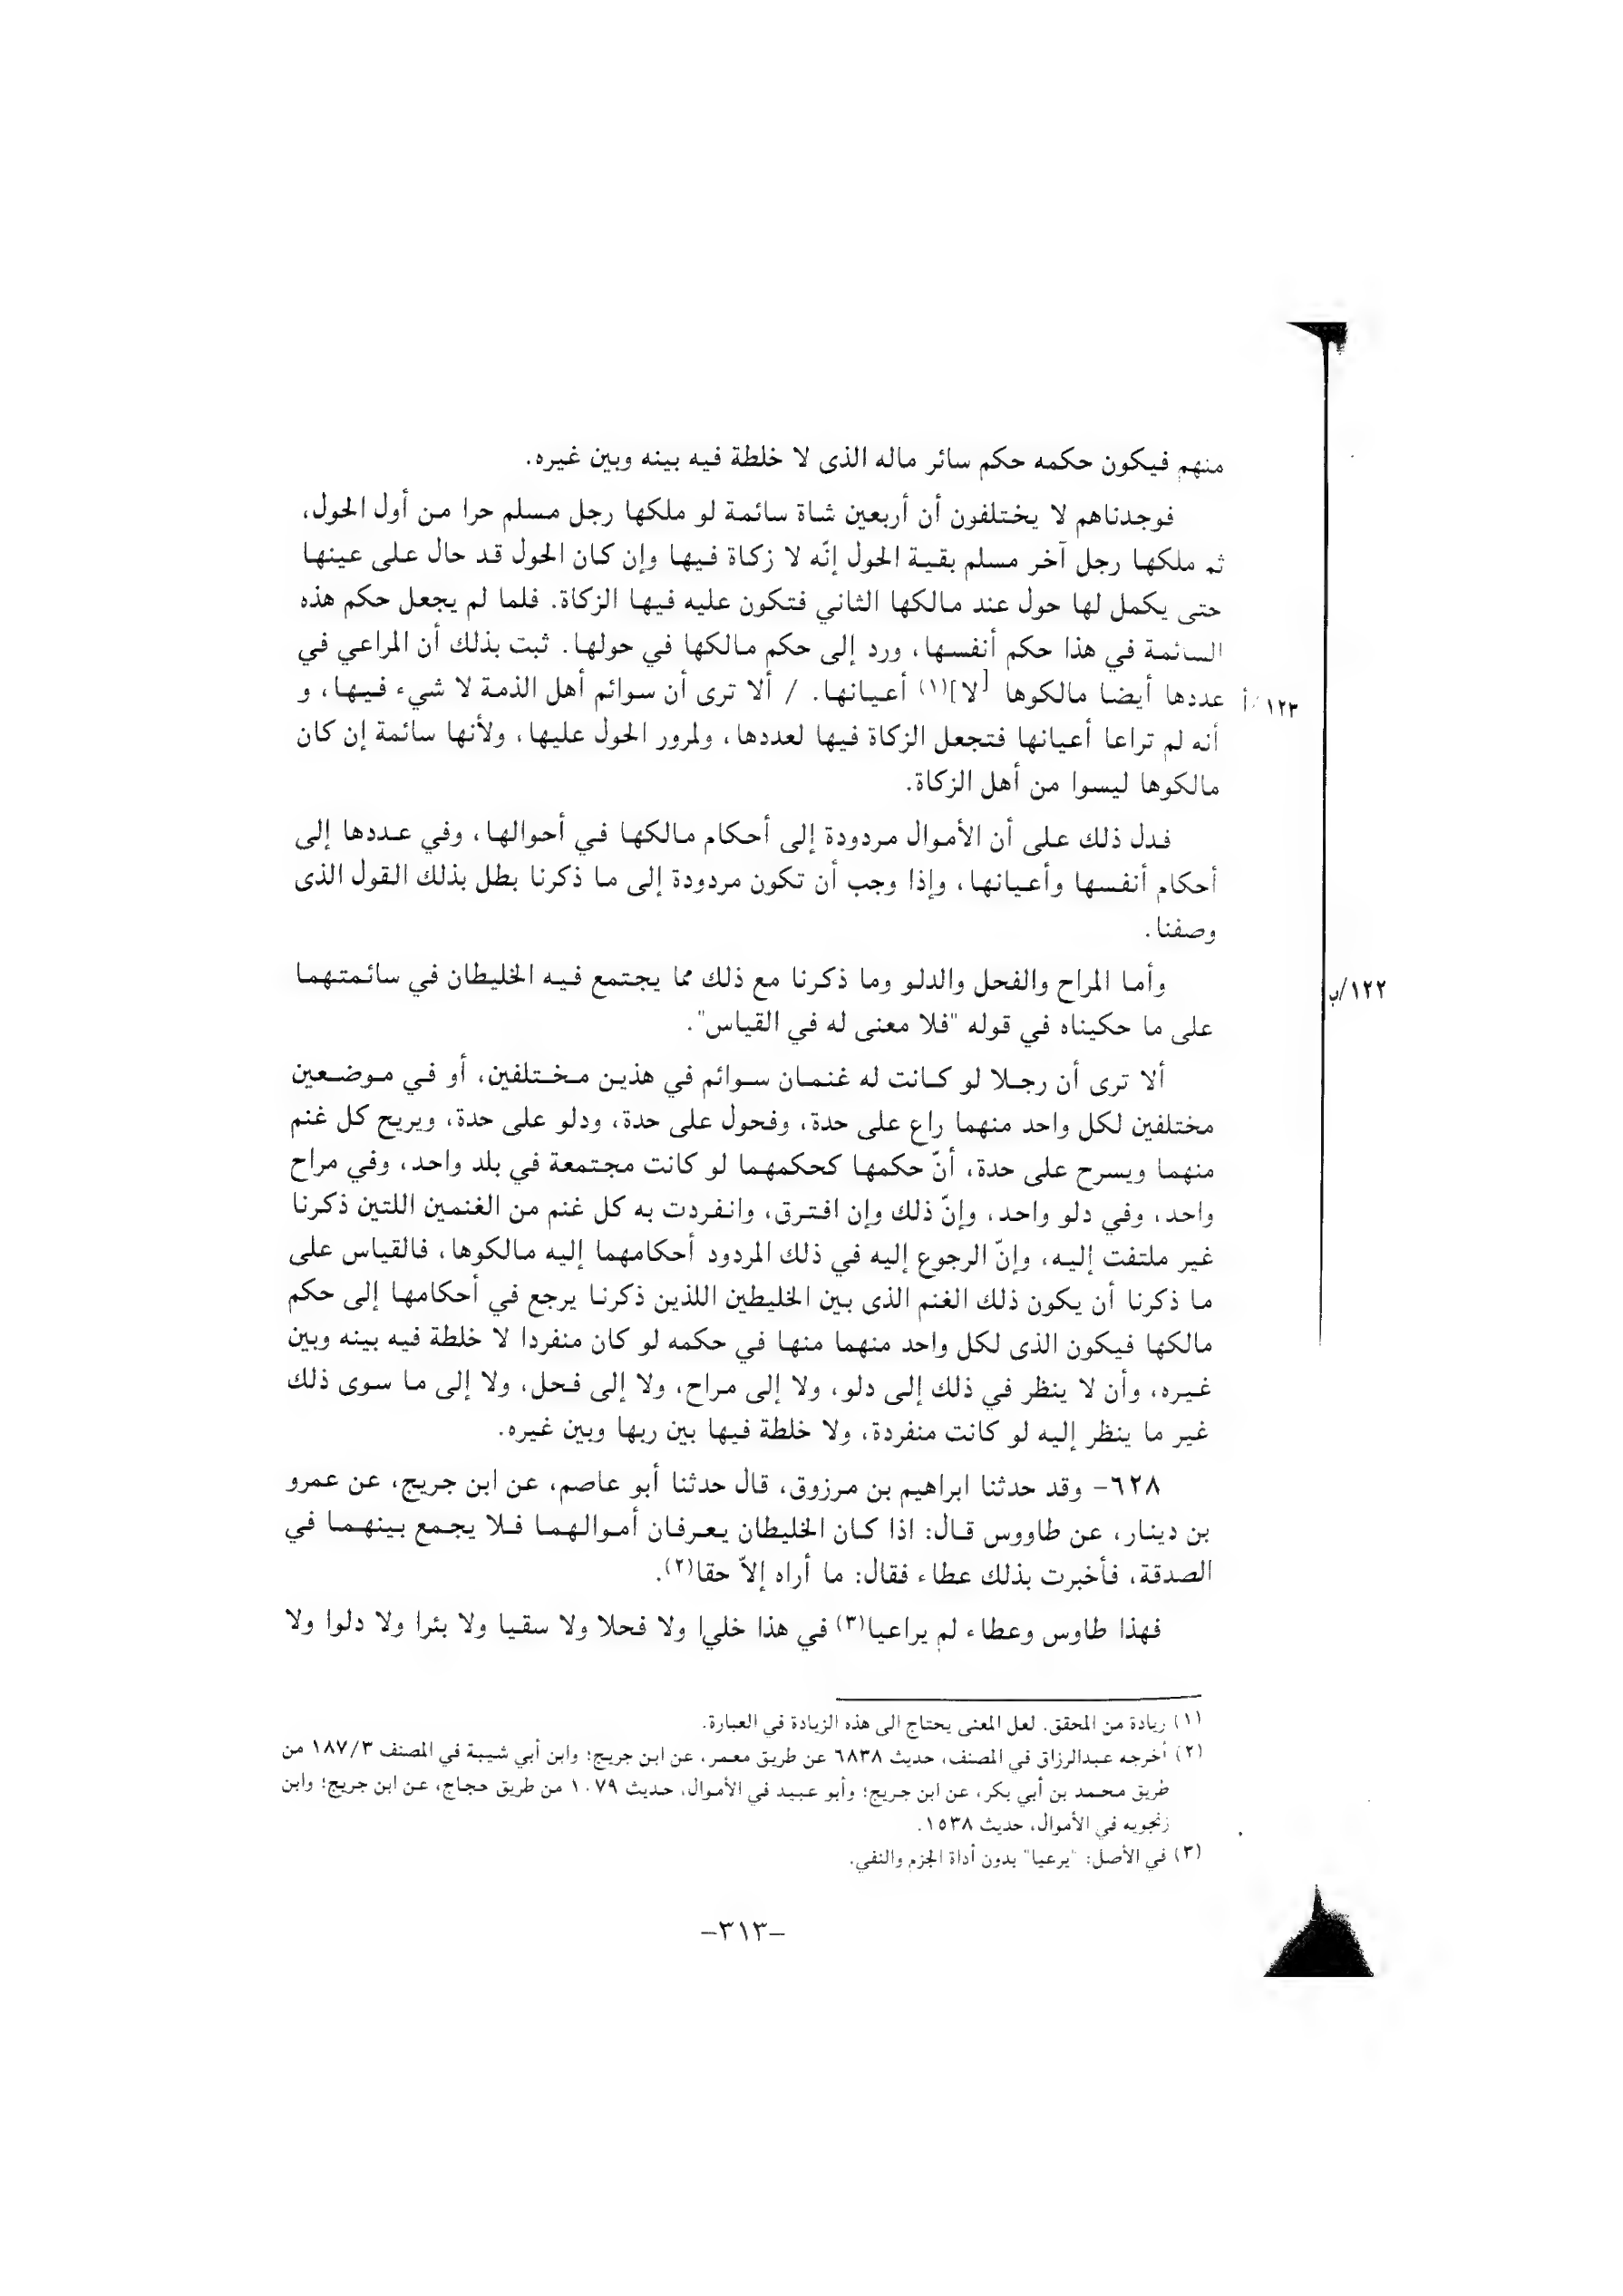 منهم فيكون حكمه حكم سائر ماله الذى لا خلطة فيه بينه وبين غيره.
فوجدناهم لا يختلفون أن أربعين شاة سائمة لو ملكها رجل مسلم حرا من أول الحول،
ثم ملكها رجل آخر مسلم بقية الحول إنّه لا زكاة فيها وإن كان الحول قد حال على عينها
حتى يكمل لها حول عند مالكها الثاني فتكون عليه فيها الزكاة. فلما لم يجعل حكم هذه
السائمة في هذا حكم أنفسها، ورد إلى حكم مالكها في حولها. ثبت بذلك أن المراعي في
١٢٣/أ عددها أيضا مالكوها [لا](١) أعيانها. / ألا ترى أن سوائم أهل الذمة لا شيء فيها، و
أنه لم تراعا أعيانها فتجعل الزكاة فيها لعددها، ولمرور الحول عليها، ولأنها سائمة إن كان
مالكوها ليسوا من أهل الزكاة.
فدل ذلك على أن الأموال مردودة إلى أحكام مالكها في أحوالها، وفي عددها إلى
أحكام أنفسها وأعيانها، وإذا وجب أن تكون مردودة إلى ما ذكرنا بطل بذلك القول الذى
وصفنا.
١٢٢/ب
وأما المراح والفحل والدلو وما ذكرنا مع ذلك مما يجتمع فيه الخليطان في سائمتهما
على ما حكيناه في قوله "فلا معنى له في القياس".
ألا ترى أن رجلا لو كانت له غنمان سوائم في هذين مختلفين، أو في موضعين
مختلفين لكل واحد منهما راع على حدة، وفحول على حدة، ودلو على حدة، ويريح كل غنم
منهما ويسرح على حدة، أنّ حكمها كحكمهما لو كانت مجتمعة في بلد واحد، وفي مراح
واحد، وفي دلو واحد، وإنّ ذلك وإن افترق، وانفردت به كل غنم من الغنمين اللتين ذكرنا
غير ملتفت إليه، وإنّ الرجوع إليه في ذلك المردود أحكامهما إليه مالكوها، فالقياس على
ما ذكرنا أن يكون ذلك الغنم الذى بين الخليطين اللذين ذكرنا يرجع في أحكامها إلى حكم
مالكها فيكون الذى لكل واحد منهما منها في حكمه لو كان منفردا لا خلطة فيه بينه وبين
غيره، وأن لا ينظر في ذلك إلى دلو، ولا إلى مراح، ولا إلى فحل، ولا إلى ما سوى ذلك
غير ما ينظر إليه لو كانت منفردة، ولا خلطة فيها بين ربها وبين غيره.
٦٢٨- وقد حدثنا ابراهيم بن مرزوق، قال حدثنا أبو عاصم، عن ابن جريج، عن عمرو
بن دينار، عن طاووس قال: اذا كان الخليطان يعرفان أموالهما فلا يجمع بينهما في
الصدقة، فأخبرت بذلك عطاء فقال: ما أراه إلاّ حقا(٢).
فهذا طاوس وعطاء لم يراعيا(٣) في هذا ولا فحلا ولا سقيا ولا بئرا ولا دلوا ولا
(١) زيادة من المحقق. لعل المعنى يحتاج الى هذه الزيادة في العبارة.
(٢) أخرجه عبدالرزاق في المصنف، حديث ٦٨٣٨ عن طريق معمر، عن ابن جريج؛ وابن أبي شيبة في المصنف ١٨٧/٣ من
طريق محمد بن أبي بكر، عن ابن جريج؛ وأبو عبيد في الأموال، حديث ١٠٧٩ من طريق حجاج، عن ابن جريج؛ وابن
زنجويه في الأموال، حديث ١٥٣٨.
(٣) في الأصل: "يرعيا" بدون أداة الجزم والنفي.
-٣١٣-